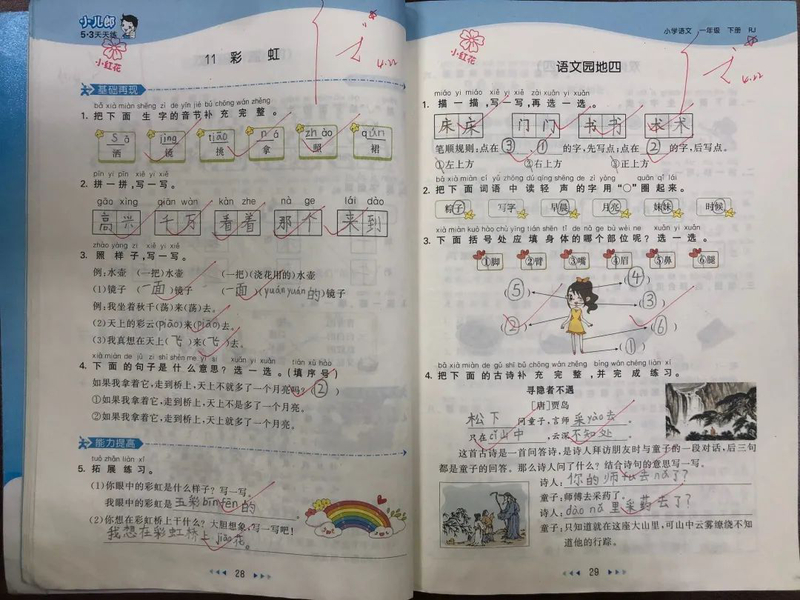 小儿郎
5·3天天练
小红花
11 彩 虹
4.22
基础再现
bǎ xià miàn shēng zì de yīn jié bǔ chōng wán zhěng
1. 把下面生字的音节补充完整。
sǎ jìng tiāo ná zhào qún
洒 镜 挑 拿 照 裙
pīn yī pīn xiě yì xiě
2. 拼一拼,写一写。
gāo xìng qiān wàn kàn zhe nà ge lái dào
高兴 千万 看着 那个 来到
zhào yàng zi xiě yì xiě
3. 照样子,写一写。
例:水壶 (一把)水壶 (一把)(浇花用的)水壶
(1)镜子 (一面)镜子 (一面)(yuányuán的)镜子
例:我坐着秋千(荡)来(荡)去。
(2)天上的彩云(piāo)来(piāo)去。
(3)我真想在天上(飞)来(飞)去。
4. 下面的句子是什么意思?选一选。(填序号)
如果我拿着它,走到桥上,天上不就多了一个月亮吗?(②)
①如果我拿着它,走到桥上,天上不是多了一个月亮。
②如果我拿着它,走到桥上,天上就多了一个月亮。
能力提高
tuò zhǎn liàn xí
5. 拓展练习。
(1)你眼中的彩虹是什么样子?写一写。
我眼中的彩虹是五彩bīnfēn的
(2)你想在彩虹桥上干什么?大胆想象,写一写吧!
我想在彩虹桥上jiāo花。
28
小学语文 一年级 下册 RJ
小红花
语文园地四
4.22
miáo yi miáo xiě yi xiě zài xuǎn yi xuǎn
1. 描一描,写一写,再选一选。
床床 门门 书书 术术
笔顺规则:点在(③)(①)的字,先写点;点在(②)的字,后写点。
①左上方 ②右上方 ③正上方
bǎ xià miàn cí yǔ zhōng dú qīng shēng de zì yòng quān qǐ lái
2. 把下面词语中读轻声的字用“○”圈起来。
粽子 写字 早晨 月亮 妹妹 时候
xià miàn kuò hào chù yīng tián shēn tǐ de nǎ ge bù wèi ne xuǎn yi xuǎn
3. 下面括号处应填身体的哪个部位呢?选一选。
①脚 ②臂 ③嘴 ④眉 ⑤鼻 ⑥腿
(⑤) (④)
(③)
(②) (⑥)
(①)
bǎ xià miàn de gǔ shī bǔ chōng wán zhěng bìng wán chéng liàn xí
4. 把下面的古诗补充完整,并完成练习。
寻隐者不遇
[唐]贾岛
松下问童子,言师采yào去
只在cǐ山中,云深不知处
这首古诗是一首问答诗,是诗人拜访朋友时与童子的一段对话,后三句
都是童子的回答。那么诗人问了什么?结合诗句的意思写一写。
诗人:你的师fu去nǎ了?
童子:师傅去采药了。
诗人:dào nǎ里采药去了?
童子:只知道就在这座大山里,可山中云雾缭绕不知
道他的行踪。
29